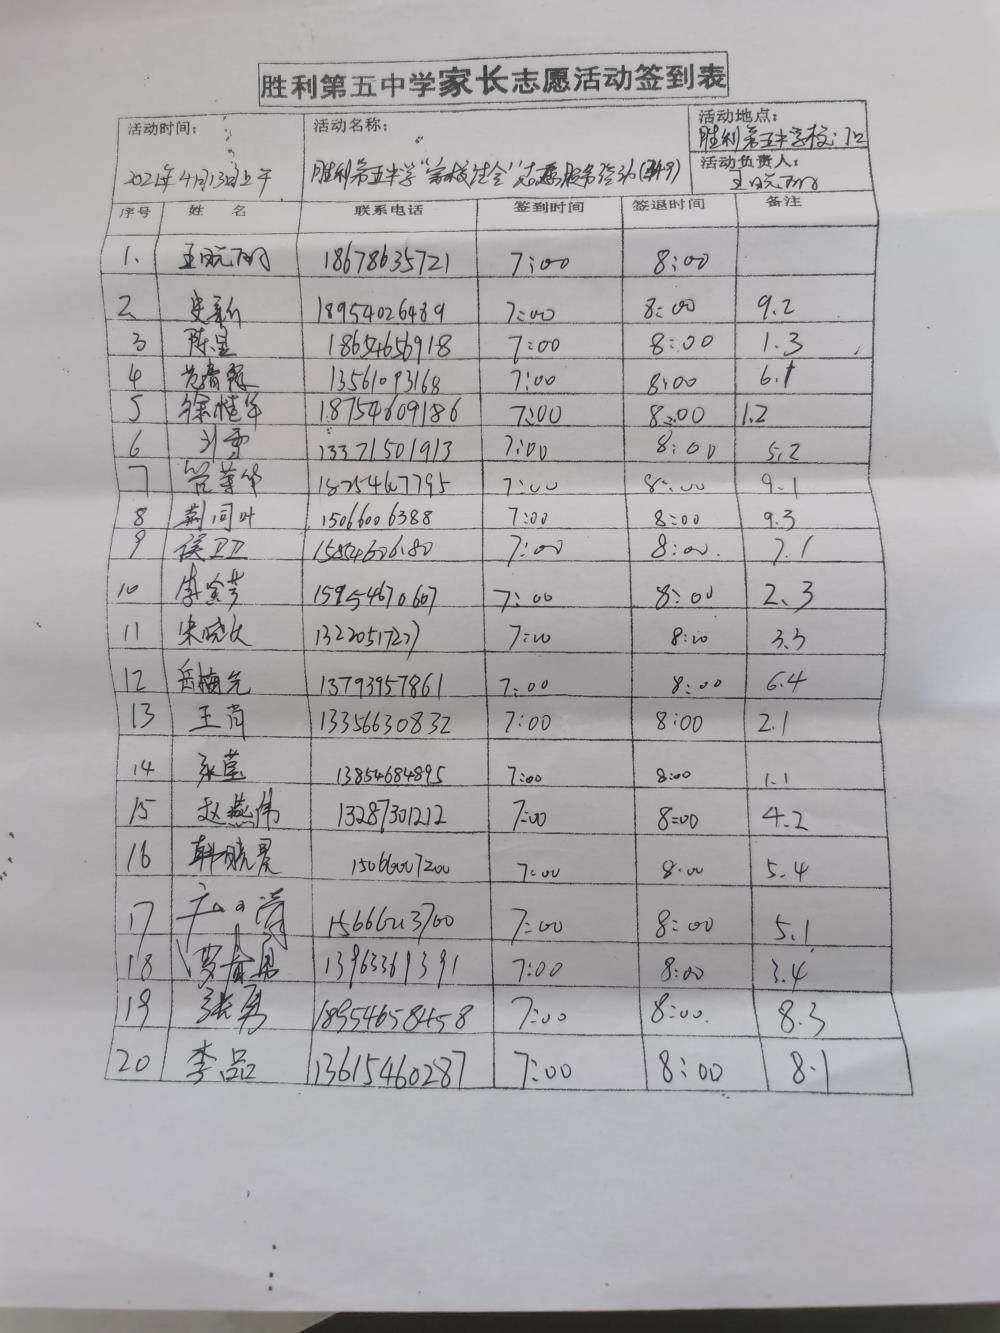 胜利第五中学家长志愿活动签到表
活动时间： 活动名称： 活动地点：
胜利第五中学校门口
2021年4月13日上午 胜利第五中学 志愿服务活动 活动负责人：
王晓丽
序号 姓 名 联系电话 签到时间 签退时间 备注
1. 王晓丽 18678635721 7:00 8:00
2 史新 18954026489 7:00 8:00 9.2
3 陈星 18654656918 7:00 8:00 1.3
4 13561093168 7:00 8:00 6.1
5 徐桂华 18754609186 7:00 8:00 1.2
6 刘雪 13371501913 7:00 8:00 5.2
7 管华 18254607795 7:00 8:00 9.1
8 荆同叶 15066006388 7:00 8:00 9.3
9 侯卫卫 7:00 8:00. 7.1
10 李金芳 15954670607 7:00 8:00 2.3
11 宋晓文 7:00 8:00 3.3
12 岳梅先 13793957861 7:00 8:00 6.4
13 王肖 13356630832 7:00 8:00 2.1
14 13854684895 7:00 8:00 1.1
15 赵燕伟 13287301212 7:00 8:00 4.2
16 韩晓霞 15066007200 7:00 8:00 5.4
17 7:00 8:00 5.1
18 13963369391 7:00 8:00 3.4
19 张勇 18954658458 7:00 8:00. 8.3
20 李品 13615460287 7:00 8:00 8.1